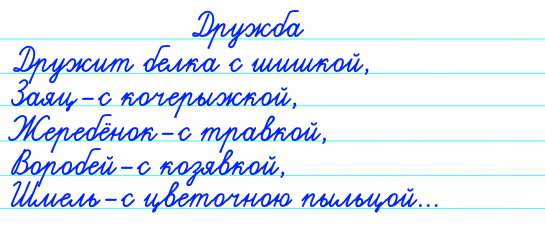 Дружба
Дружит белка с шишкой,
Заяц – с кочерыжкой,
Жеребёнок – с травкой,
Воробей – с козявкой,
Шмель – с цветочною пыльцой...